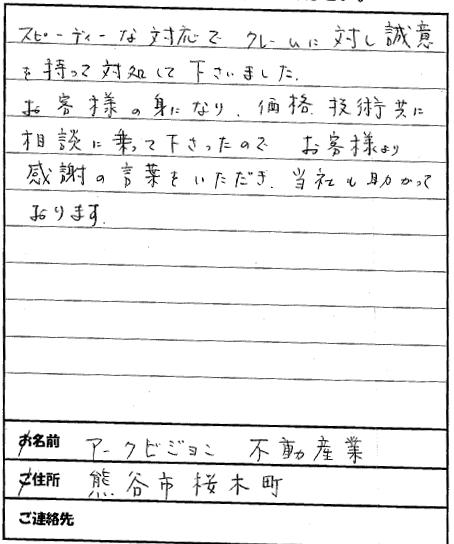 スピーディーな対応で クレームに対し誠意
を持って対処して下さいました.
お客様の身になり、価格、技術共に
相談に乗って下さったので お客様より
感謝の言葉をいただき、当社も助かって
おります.
お名前 アークビジョン 不動産業
ご住所 熊谷市桜木町
ご連絡先